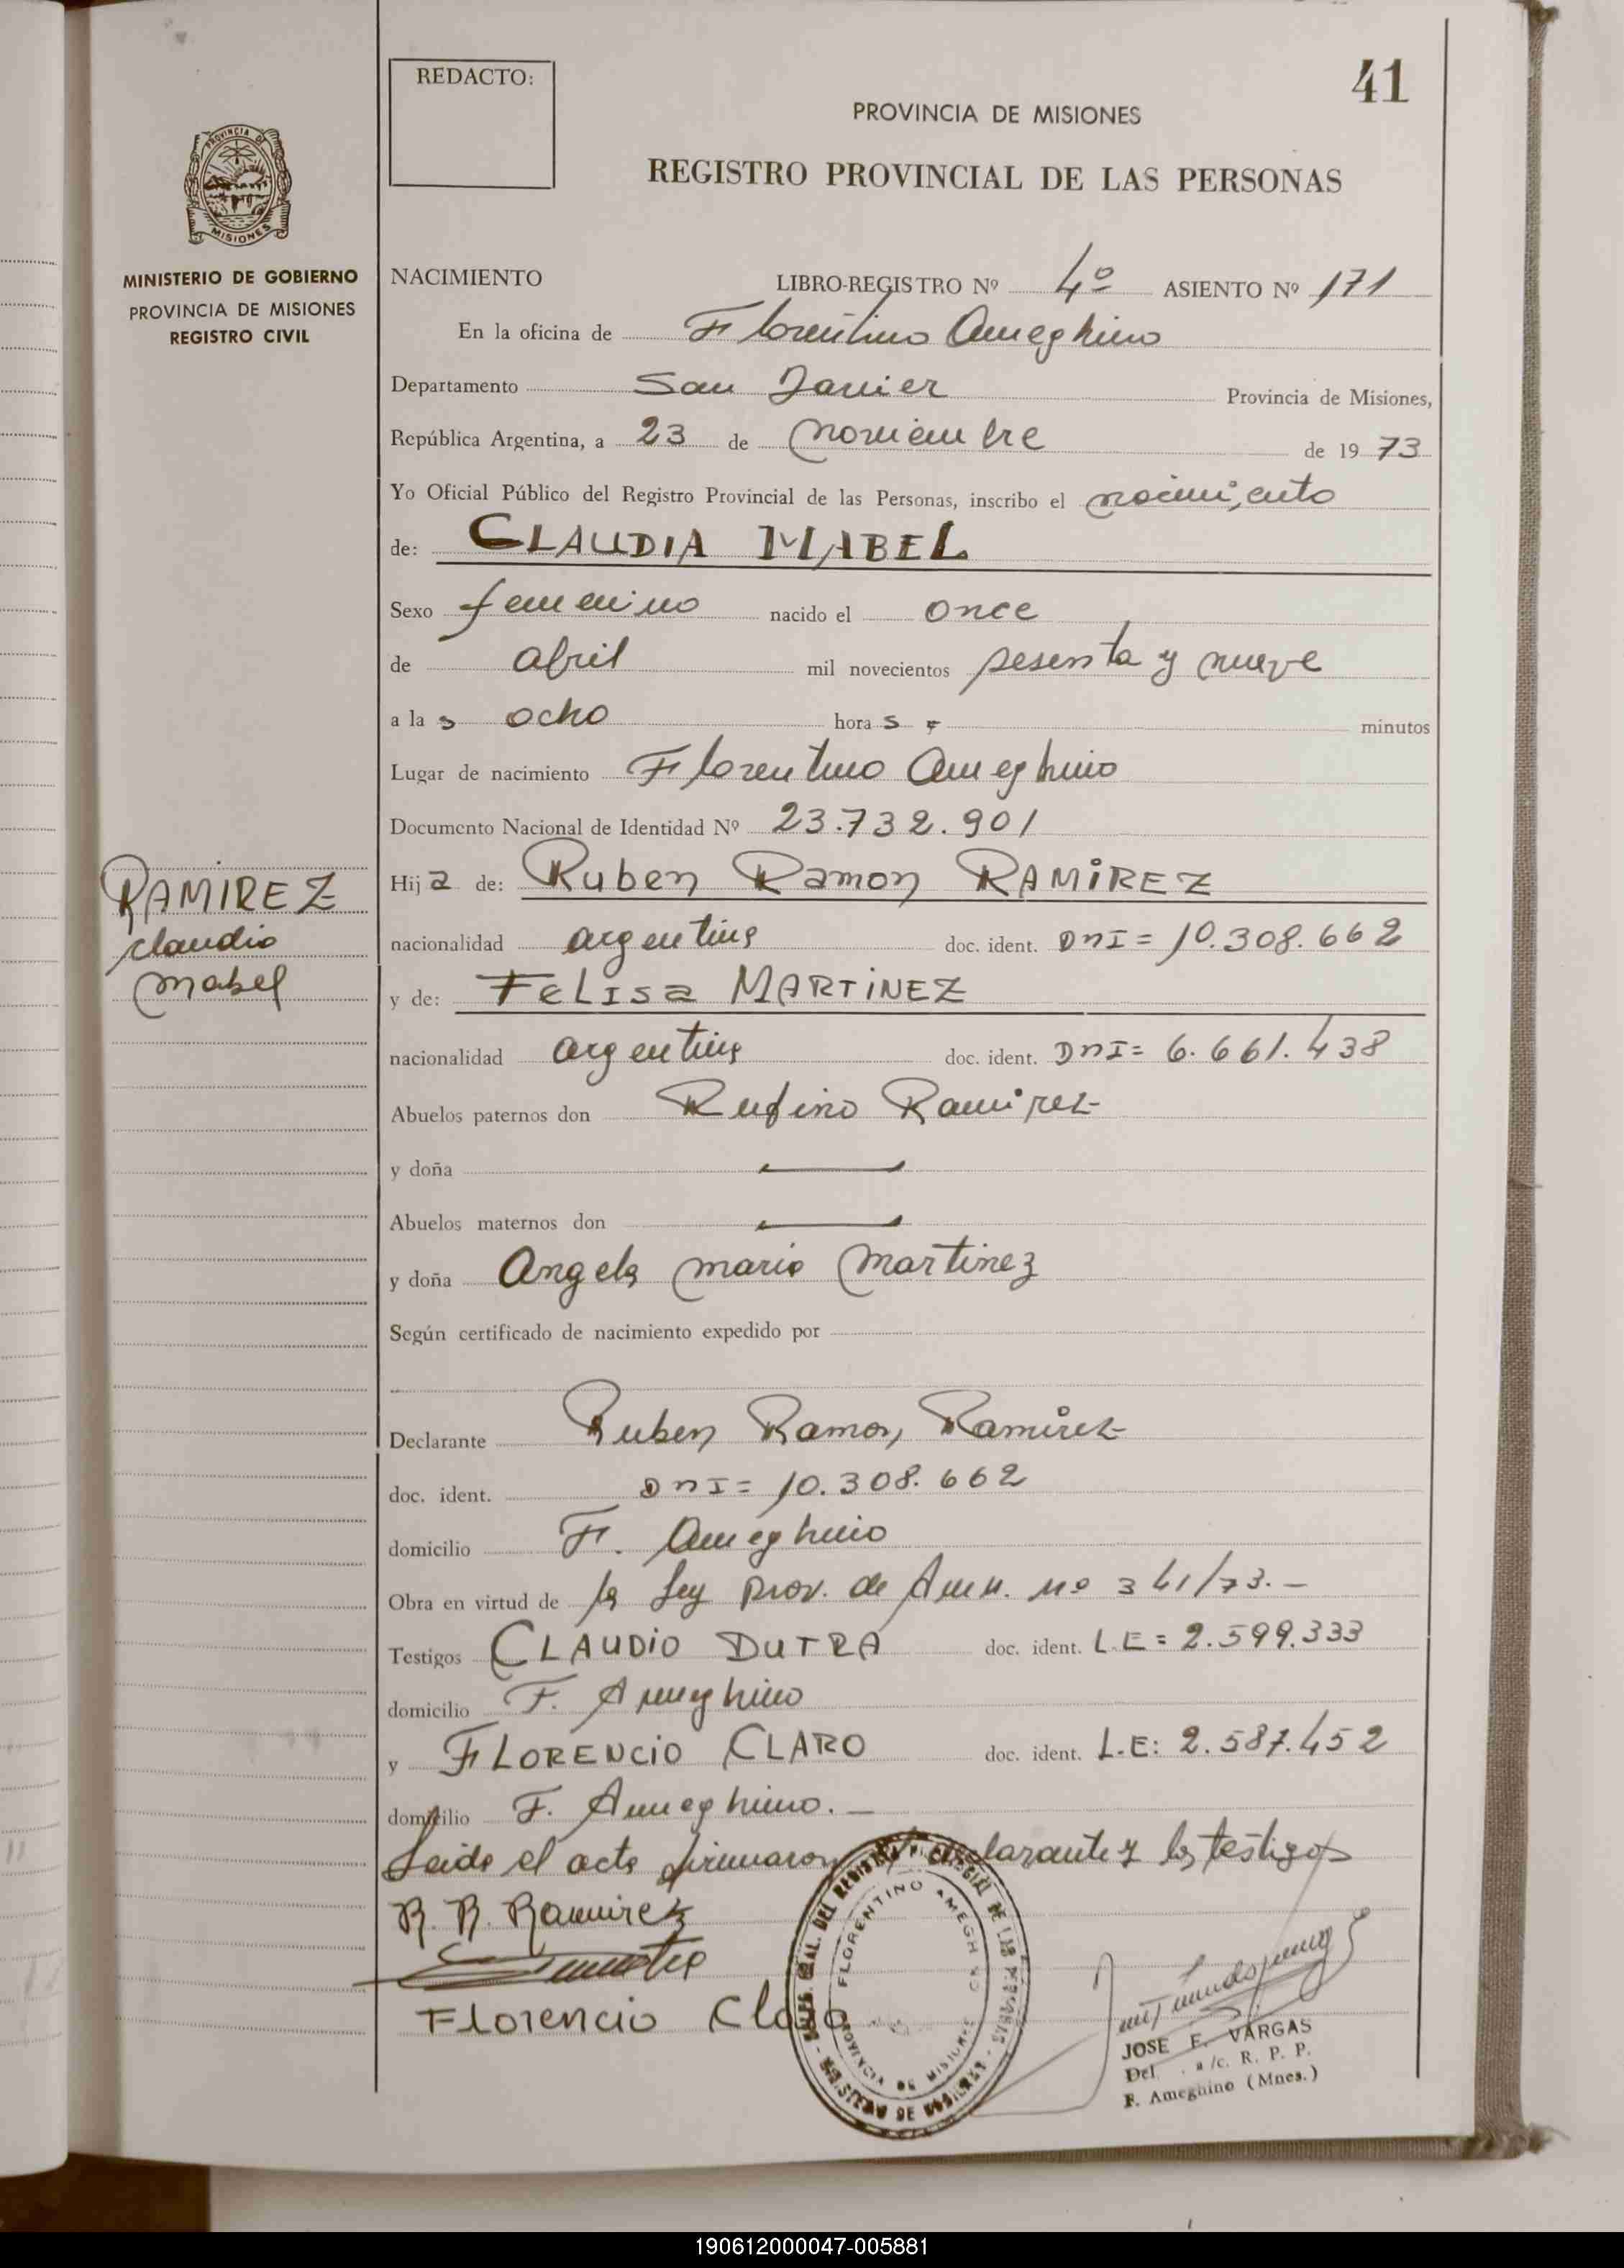 REDACTO:
41
PROVINCIA DE MISIONES
REGISTRO PROVINCIAL DE LAS PERSONAS
PROVINCIA DE
MISIONES
MINISTERIO DE GOBIERNO
PROVINCIA DE MISIONES
REGISTRO CIVIL
NACIMIENTO LIBRO-REGISTRO Nº 4º ASIENTO Nº 171
En la oficina de Florentino Ameghino
Departamento San Javier Provincia de Misiones,
República Argentina, a 23 de noviembre de 19 73
Yo Oficial Público del Registro Provincial de las Personas, inscribo el nacimiento
de: CLAUDIA MABEL
Sexo femenino nacido el once
de abril mil novecientos sesenta y nueve
a la s ocho hora s minutos
Lugar de nacimiento Florentino Ameghino
Documento Nacional de Identidad Nº 23.732.901
Hij a de: Ruben Ramon RAMIREZ
RAMIREZ
Claudia
Mabel
nacionalidad argentina doc. ident. DNI= 10.308.662
y de: FELISA MARTINEZ
nacionalidad argentina doc. ident. DNI= 6.661.438
Abuelos paternos don Rufino Ramirez
y doña —
Abuelos maternos don —
y doña Angela Maria Martinez
Según certificado de nacimiento expedido por
Declarante Ruben Ramon Ramirez
doc. ident. DNI= 10.308.662
domicilio F. Ameghino
Obra en virtud de la Ley prov. de Amn. nº 341/73.-
Testigos CLAUDIO DUTRA doc. ident. L.E= 2.599.333
domicilio F. Ameghino
y FLORENCIO CLARO doc. ident. L.E: 2.587.452
domicilio F. Ameghino.-
Leida el acta firmaron declarante y los testigos
R. R. Ramirez
Florencio Claro
FLORENTINO AMEGHINO
PROVINCIA DE MISIONES
JOSE F. VARGAS
Del. a/c. R. P. P.
F. Ameghino (Mnes.)
190612000047-005881